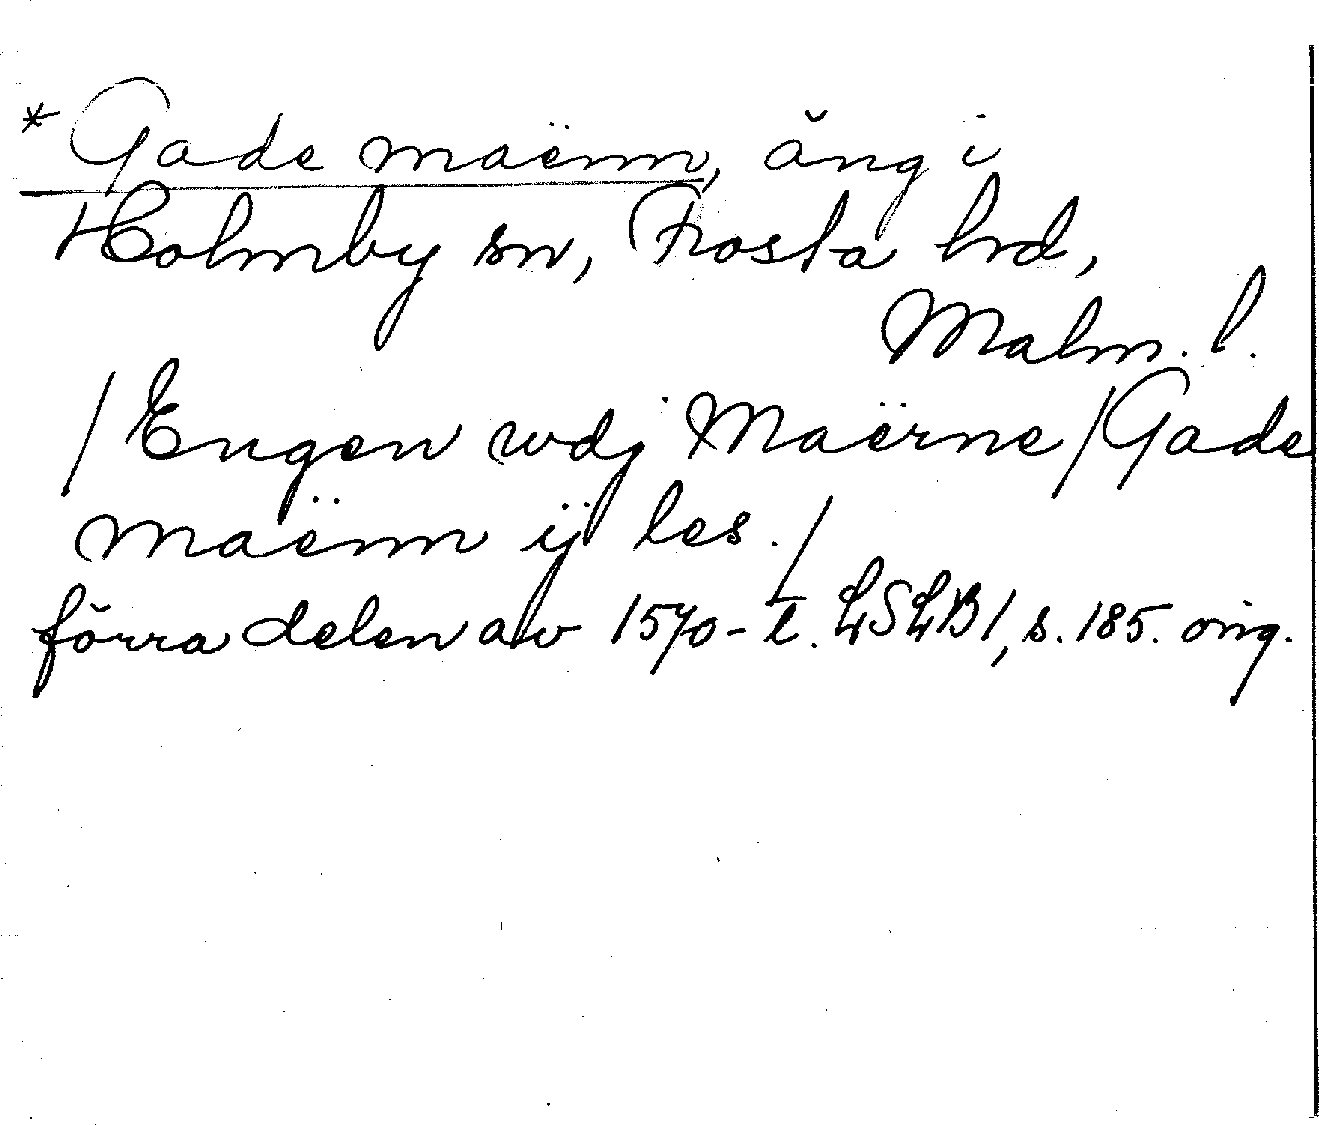 * Gade maënn, äng i
Holmby sn, Frosta hrd,
Malm. l.
/Engen wdj Maërne/Gade
maënn ij les./
förra delen av 1570-t. LSLB1, s. 185. orig.